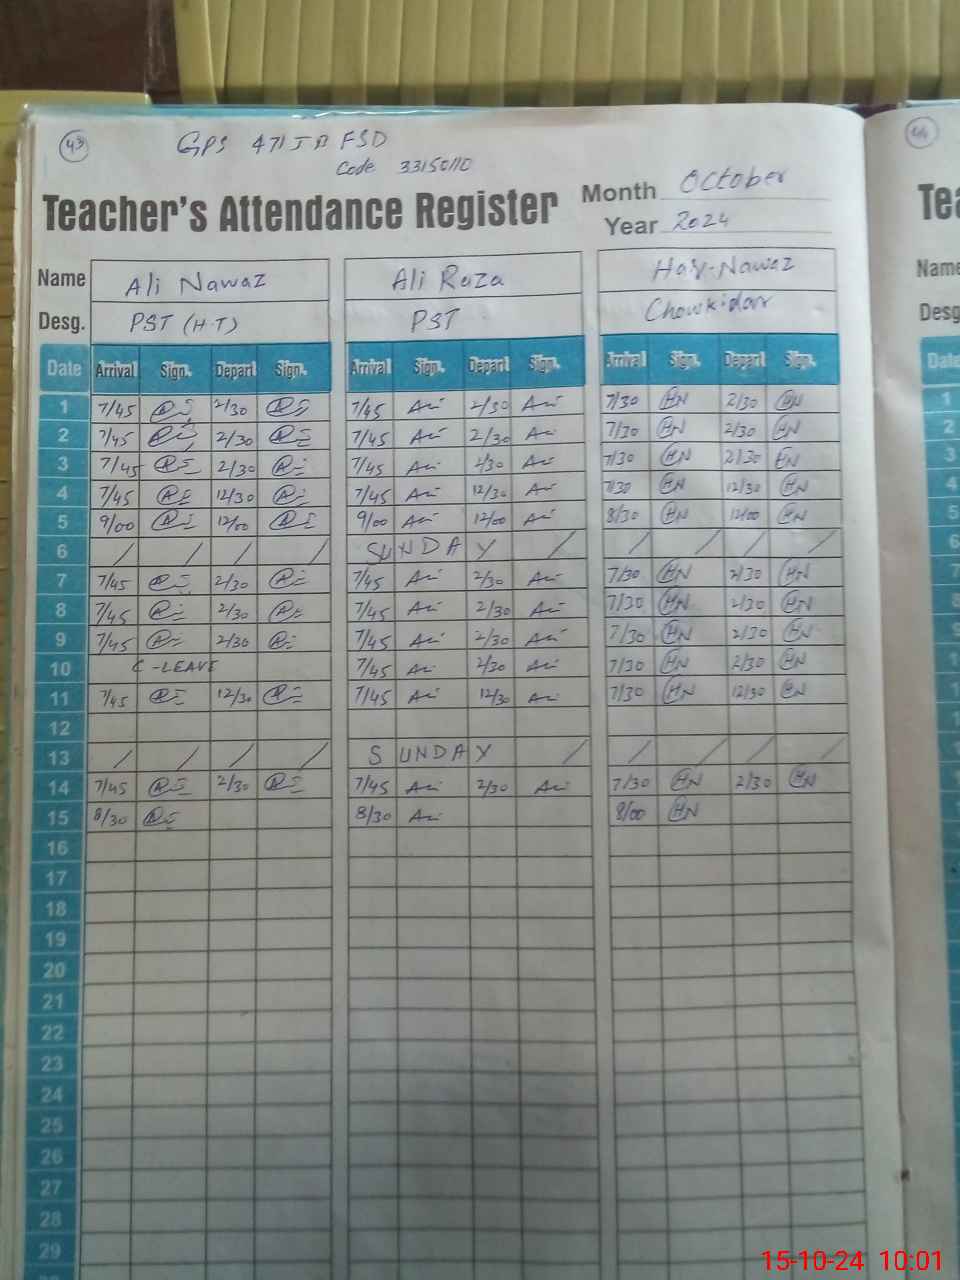 43
GPS 471 JB FSD
Code 33150110
44
Teacher's Attendance Register Month October
Year 2024
Name Ali Nawaz Ali Raza Haq-Nawaz
Desg. PST (H.T) PST Chowkidar
Date Arrival Sign. Depart Sign. Arrival Sign. Depart Sign. Arrival Sign. Depart Sign.
1 7/45 2/30 7/45 Ali 2/30 Ali 7/30 HN 2/30 HN
2 7/45 2/30 7/45 Ali 2/30 Ali 7/30 HN 2/30 HN
3 7/45 2/30 7/45 Ali 2/30 Ali 7/30 HN 2/30 HN
4 7/45 12/30 7/45 Ali 12/30 Ali 7/30 HN 12/30 HN
5 9/00 12/00 9/00 Ali 12/00 Ali 8/30 HN 12/00 HN
6 / / / / SUNDAY / / / / /
7 7/45 2/30 7/45 Ali 2/30 Ali 7/30 HN 2/30 HN
8 7/45 2/30 7/45 Ali 2/30 Ali 7/30 HN 2/30 HN
9 7/45 2/30 7/45 Ali 2/30 Ali 7/30 HN 2/30 HN
10 C-LEAVE 7/45 Ali 2/30 Ali 7/30 HN 2/30 HN
11 7/45 12/30 7/45 Ali 12/30 Ali 7/30 HN 12/30 HN
12
13 / / / / SUNDAY / / / / /
14 7/45 2/30 7/45 Ali 2/30 Ali 7/30 HN 2/30 HN
15 8/30 8/30 Ali 8/00 HN
16
17
18
19
20
21
22
23
24
25
26
27
28
29
Name
Desg
Date
15-10-24 10:01